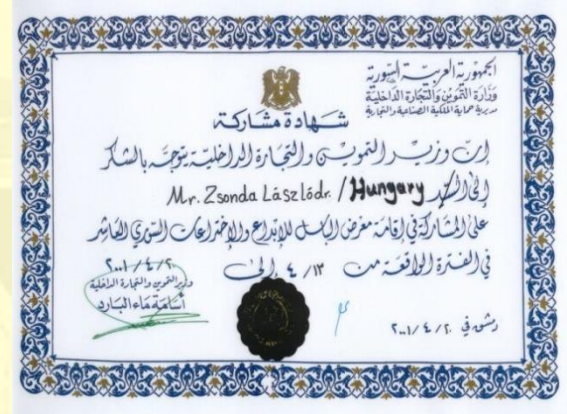 الجمهورية العربية السورية
وزارة التموين والتجارة الداخلية
مديرية حماية الملكية الصناعية والتجارية
شهادة مشاركة
إن وزير التموين والتجارة الداخلية يتوجه بالشكر
إلى السيد Mr. Zsonda Lászlódr. / Hungary
على المشاركة في إقامة معرض الباسل للإبداع والإختراعات السنوي العاشر
في الفترة الواقعة من ١٣/ ٤ إلى ٢٠٠١/٤/٢٠
وزير التموين والتجارة الداخلية
أسامة ماء البارد
دمشق في ٢٠٠١/٤/٢٠